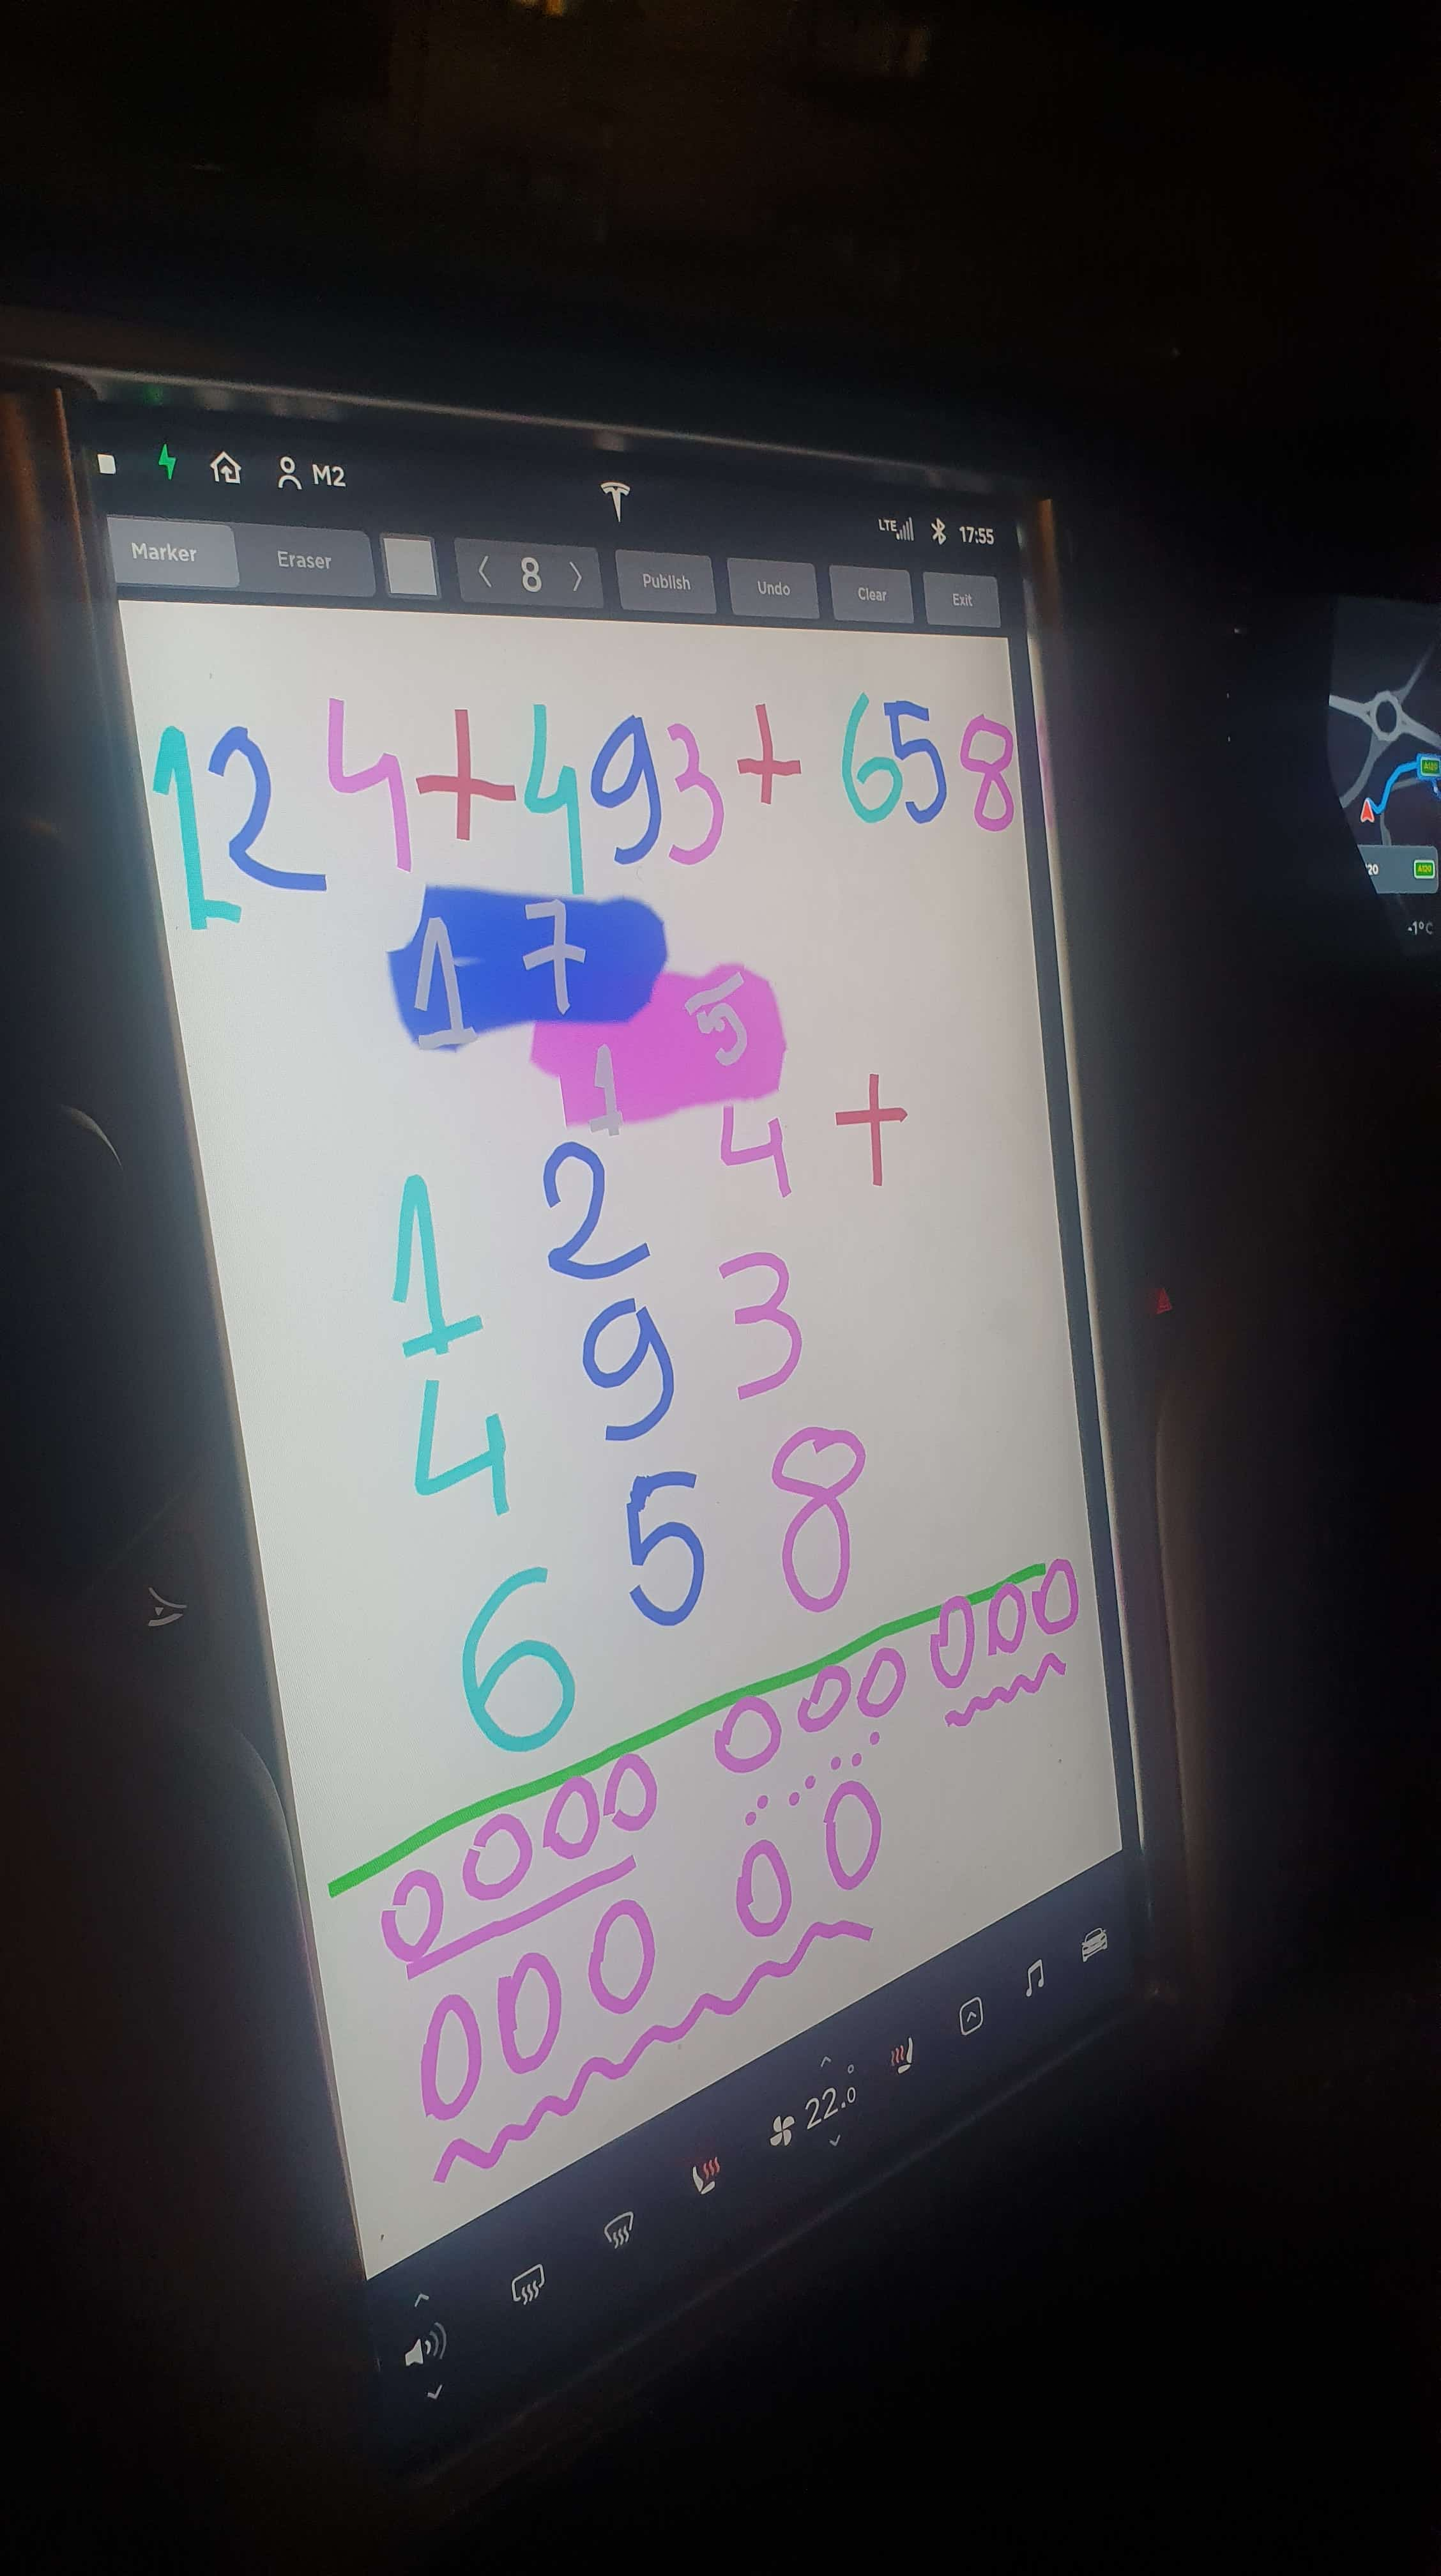 M2 LTE 17:55
Marker Eraser < 8 > Publish Undo Clear Exit
124+493+658
17
15
124+
493
658
0000 000 000
000 00
22.0°
-1°C